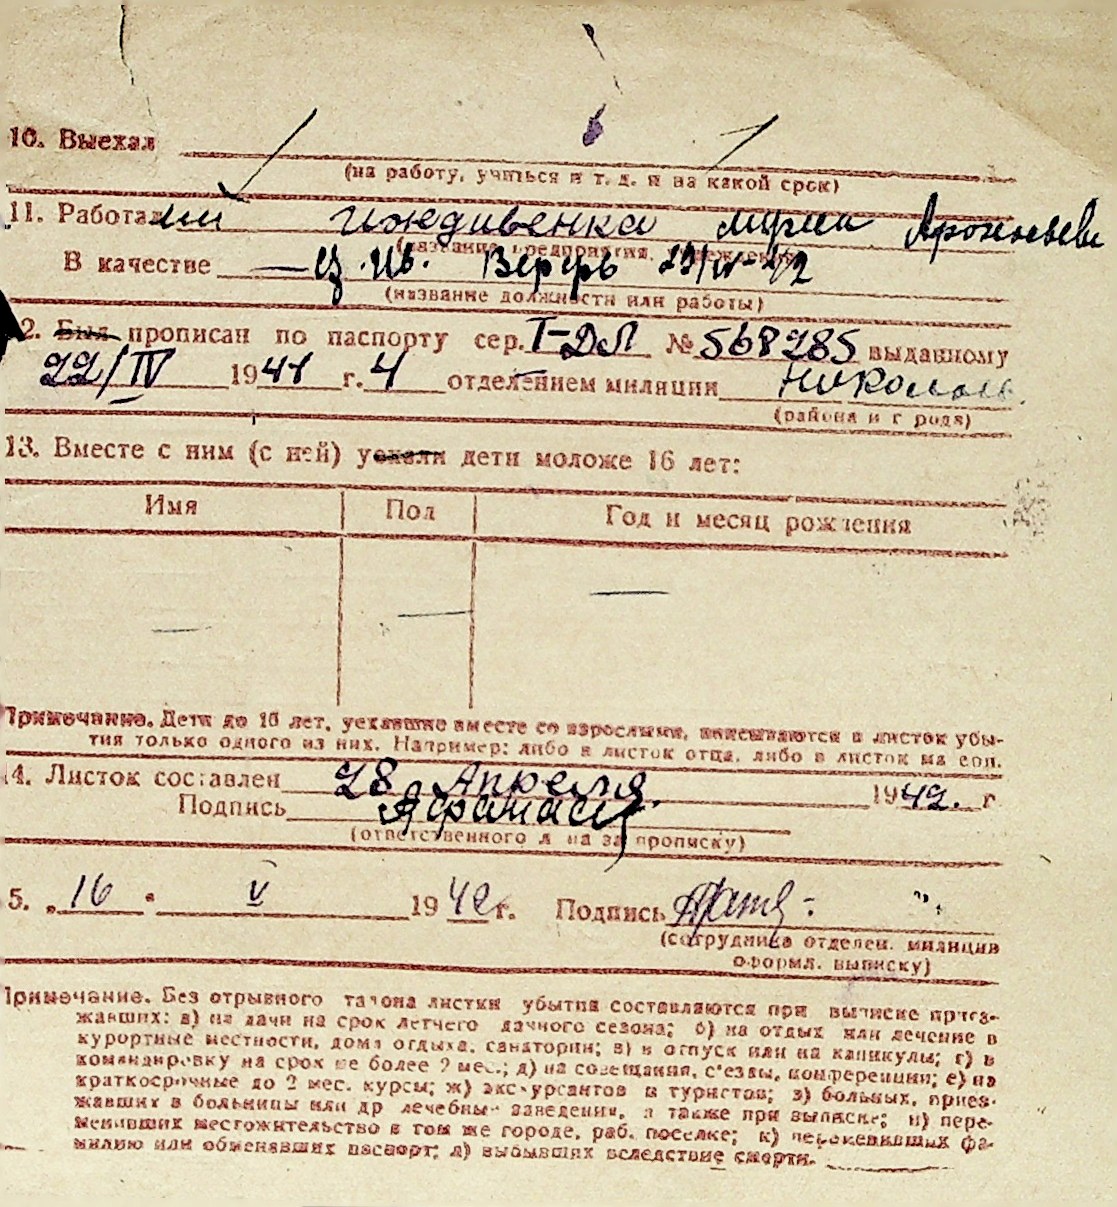 10. Выехал
(на работу, учиться и т. д. и на какой срок)
11. Работал иждивенка
(название предприятия, учреждения)
В качестве 23/IV-42
(название должности или работы)
2. Был прописан по паспорту сер. I-ДЛ № 568285 выданному
22/IV 1941 г. 4 отделением милиции
(района и города)
13. Вместе с ним (с ней) уехали дети моложе 16 лет:
Имя Пол Год и месяц рождения
— — —
Примечание. Дети до 16 лет, уехавшие вместе со взрослыми, вписываются в листок убы-
тия только одного из них. Например: либо в листок отца, либо в листок матери.
14. Листок составлен 28 Апреля 1942. г.
Подпись
(ответственного лица за прописку)
5. „16" V 1942 г. Подпись
(сотрудника отделен. милиции
оформл. выписку)
Примечание. Без отрывного талона листки убытия составляются при выписке приез-
жавших: а) на дачи на срок летнего дачного сезона; б) на отдых или лечение в
курортные местности, дома отдыха, санатории; в) в отпуск или на каникулы; г) в
командировку на срок не более 2 мес.; д) на совещания, с'езды, конференции; е) на
краткосрочные до 2 мес. курсы; ж) экскурсантов и туристов; з) больных, приез-
жавших в больницы или др лечебные заведения, а также при выписке; и) пере-
менивших местожительство в том же городе, раб. поселке; к) переменивших фа-
милию или обменявших паспорт; л) выбывших вследствие смерти.